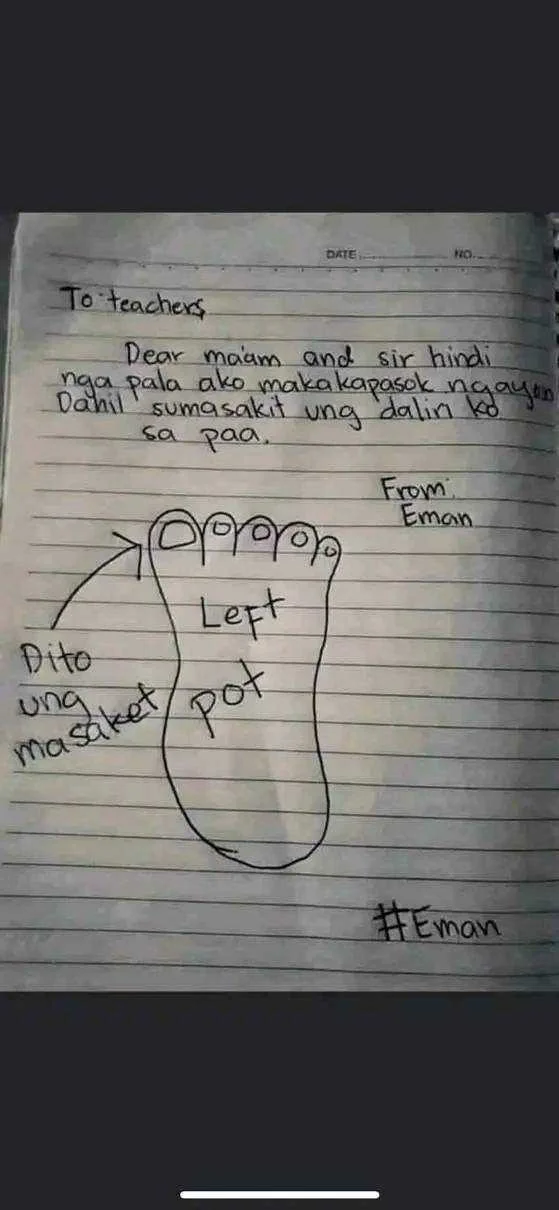 DATE
NO.
To teachers
Dear ma'am and sir hindi
nga pala ako makakapasok ngayon
Dahil sumasakit ung dalin ko
sa paa.
From:
Eman
Left
pot
Dito
ung
masaket
#Eman